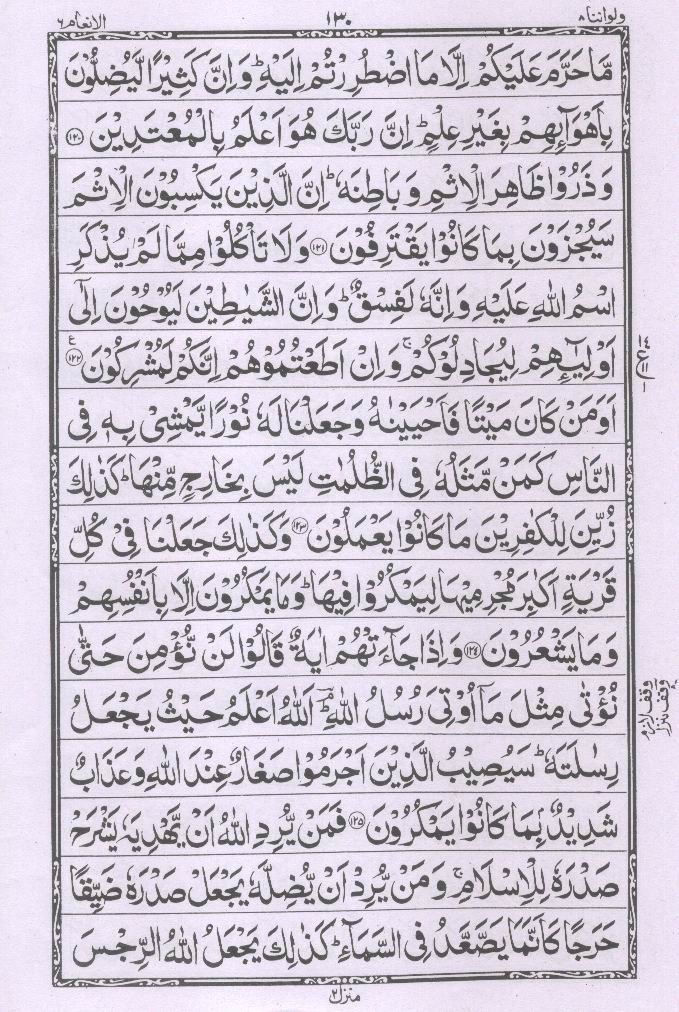 ولواننا ٨
١٣٠
الانعام ٦
مَّا حَرَّمَ عَلَيْكُمْ اِلَّا مَا اضْطُرِرْتُمْ اِلَيْهِ ؕ وَاِنَّ كَثِيْرًا لَّيُضِلُّوْنَ
بِاَهْوَآئِهِمْ بِغَيْرِ عِلْمٍ ؕ اِنَّ رَبَّكَ هُوَ اَعْلَمُ بِالْمُعْتَدِيْنَ ﴿١٢٠﴾
وَذَرُوْا ظَاهِرَ الْاِثْمِ وَبَاطِنَهٗ ؕ اِنَّ الَّذِيْنَ يَكْسِبُوْنَ الْاِثْمَ
سَيُجْزَوْنَ بِمَا كَانُوْا يَقْتَرِفُوْنَ ﴿١٢١﴾ وَلَا تَاْكُلُوْا مِمَّا لَمْ يُذْكَرِ
اسْمُ اللّٰهِ عَلَيْهِ وَاِنَّهٗ لَفِسْقٌ ؕ وَاِنَّ الشَّيٰطِيْنَ لَيُوْحُوْنَ اِلٰٓى
اَوْلِيٰٓئِهِمْ لِيُجَادِلُوْكُمْ ۚ وَاِنْ اَطَعْتُمُوْهُمْ اِنَّكُمْ لَمُشْرِكُوْنَ ﴿١٢٢﴾ ع
اَوَمَنْ كَانَ مَيْتًا فَاَحْيَيْنٰهُ وَجَعَلْنَا لَهٗ نُوْرًا يَّمْشِىْ بِهٖ فِى
النَّاسِ كَمَنْ مَّثَلُهٗ فِى الظُّلُمٰتِ لَيْسَ بِخَارِجٍ مِّنْهَا ؕ كَذٰلِكَ
زُيِّنَ لِلْكٰفِرِيْنَ مَا كَانُوْا يَعْمَلُوْنَ ﴿١٢٣﴾ وَكَذٰلِكَ جَعَلْنَا فِىْ كُلِّ
قَرْيَةٍ اَكٰبِرَ مُجْرِمِيْهَا لِيَمْكُرُوْا فِيْهَا ؕ وَمَا يَمْكُرُوْنَ اِلَّا بِاَنْفُسِهِمْ
وَمَا يَشْعُرُوْنَ ﴿١٢٤﴾ وَاِذَا جَآءَتْهُمْ اٰيَةٌ قَالُوْا لَنْ نُّؤْمِنَ حَتّٰى
نُؤْتٰى مِثْلَ مَآ اُوْتِىَ رُسُلُ اللّٰهِ ؕ ۘ اَللّٰهُ اَعْلَمُ حَيْثُ يَجْعَلُ
رِسٰلَتَهٗ ؕ سَيُصِيْبُ الَّذِيْنَ اَجْرَمُوْا صَغَارٌ عِنْدَ اللّٰهِ وَعَذَابٌ
شَدِيْدٌۢ بِمَا كَانُوْا يَمْكُرُوْنَ ﴿١٢٥﴾ فَمَنْ يُّرِدِ اللّٰهُ اَنْ يَّهْدِيَهٗ يَشْرَحْ
صَدْرَهٗ لِلْاِسْلَامِ ۚ وَمَنْ يُّرِدْ اَنْ يُّضِلَّهٗ يَجْعَلْ صَدْرَهٗ ضَيِّقًا
حَرَجًا كَاَنَّمَا يَصَّعَّدُ فِى السَّمَآءِ ؕ كَذٰلِكَ يَجْعَلُ اللّٰهُ الرِّجْسَ
منزل ٢
وقف لازم
وقف منزل